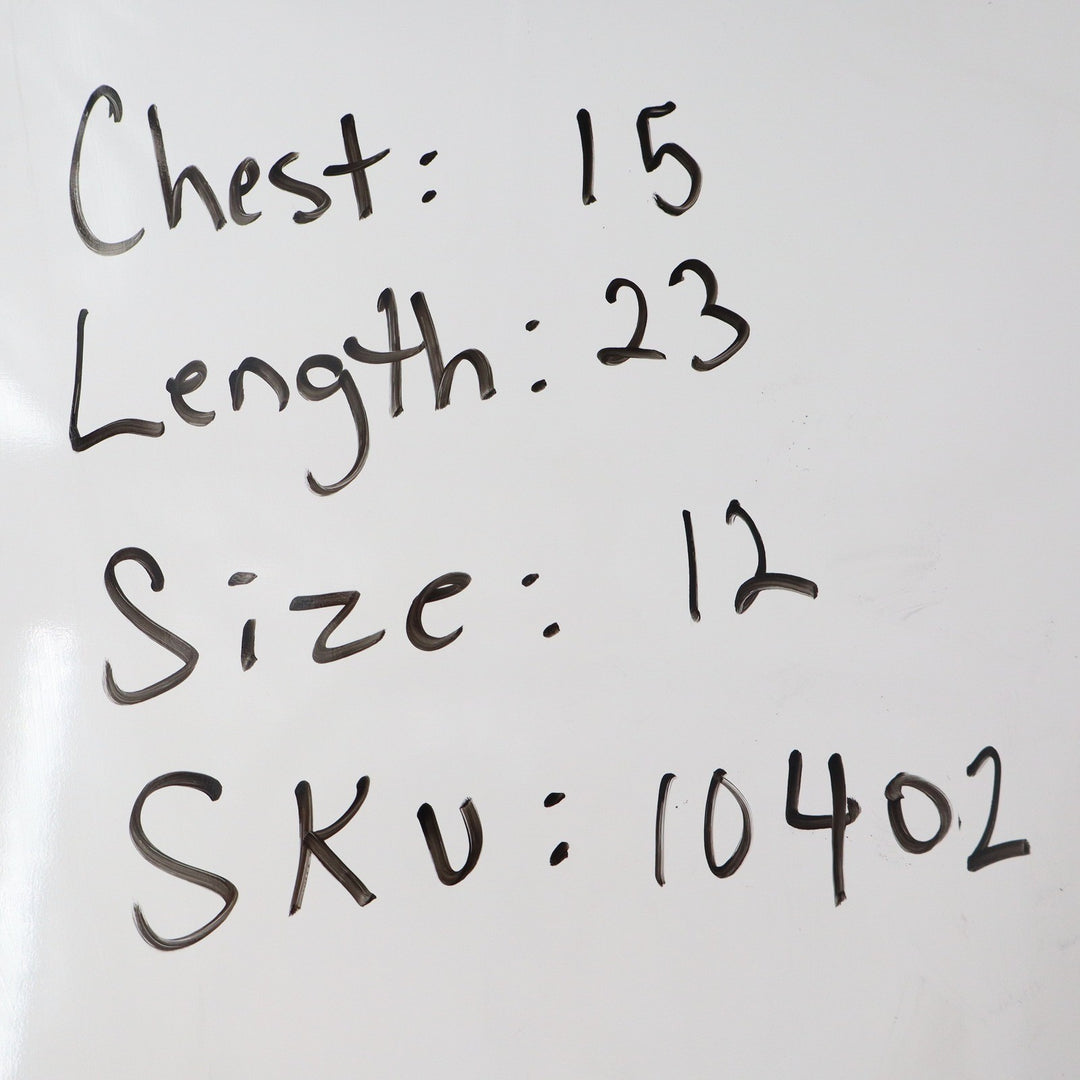 Chest: 15
Length: 23
Size: 12
SKU: 10402